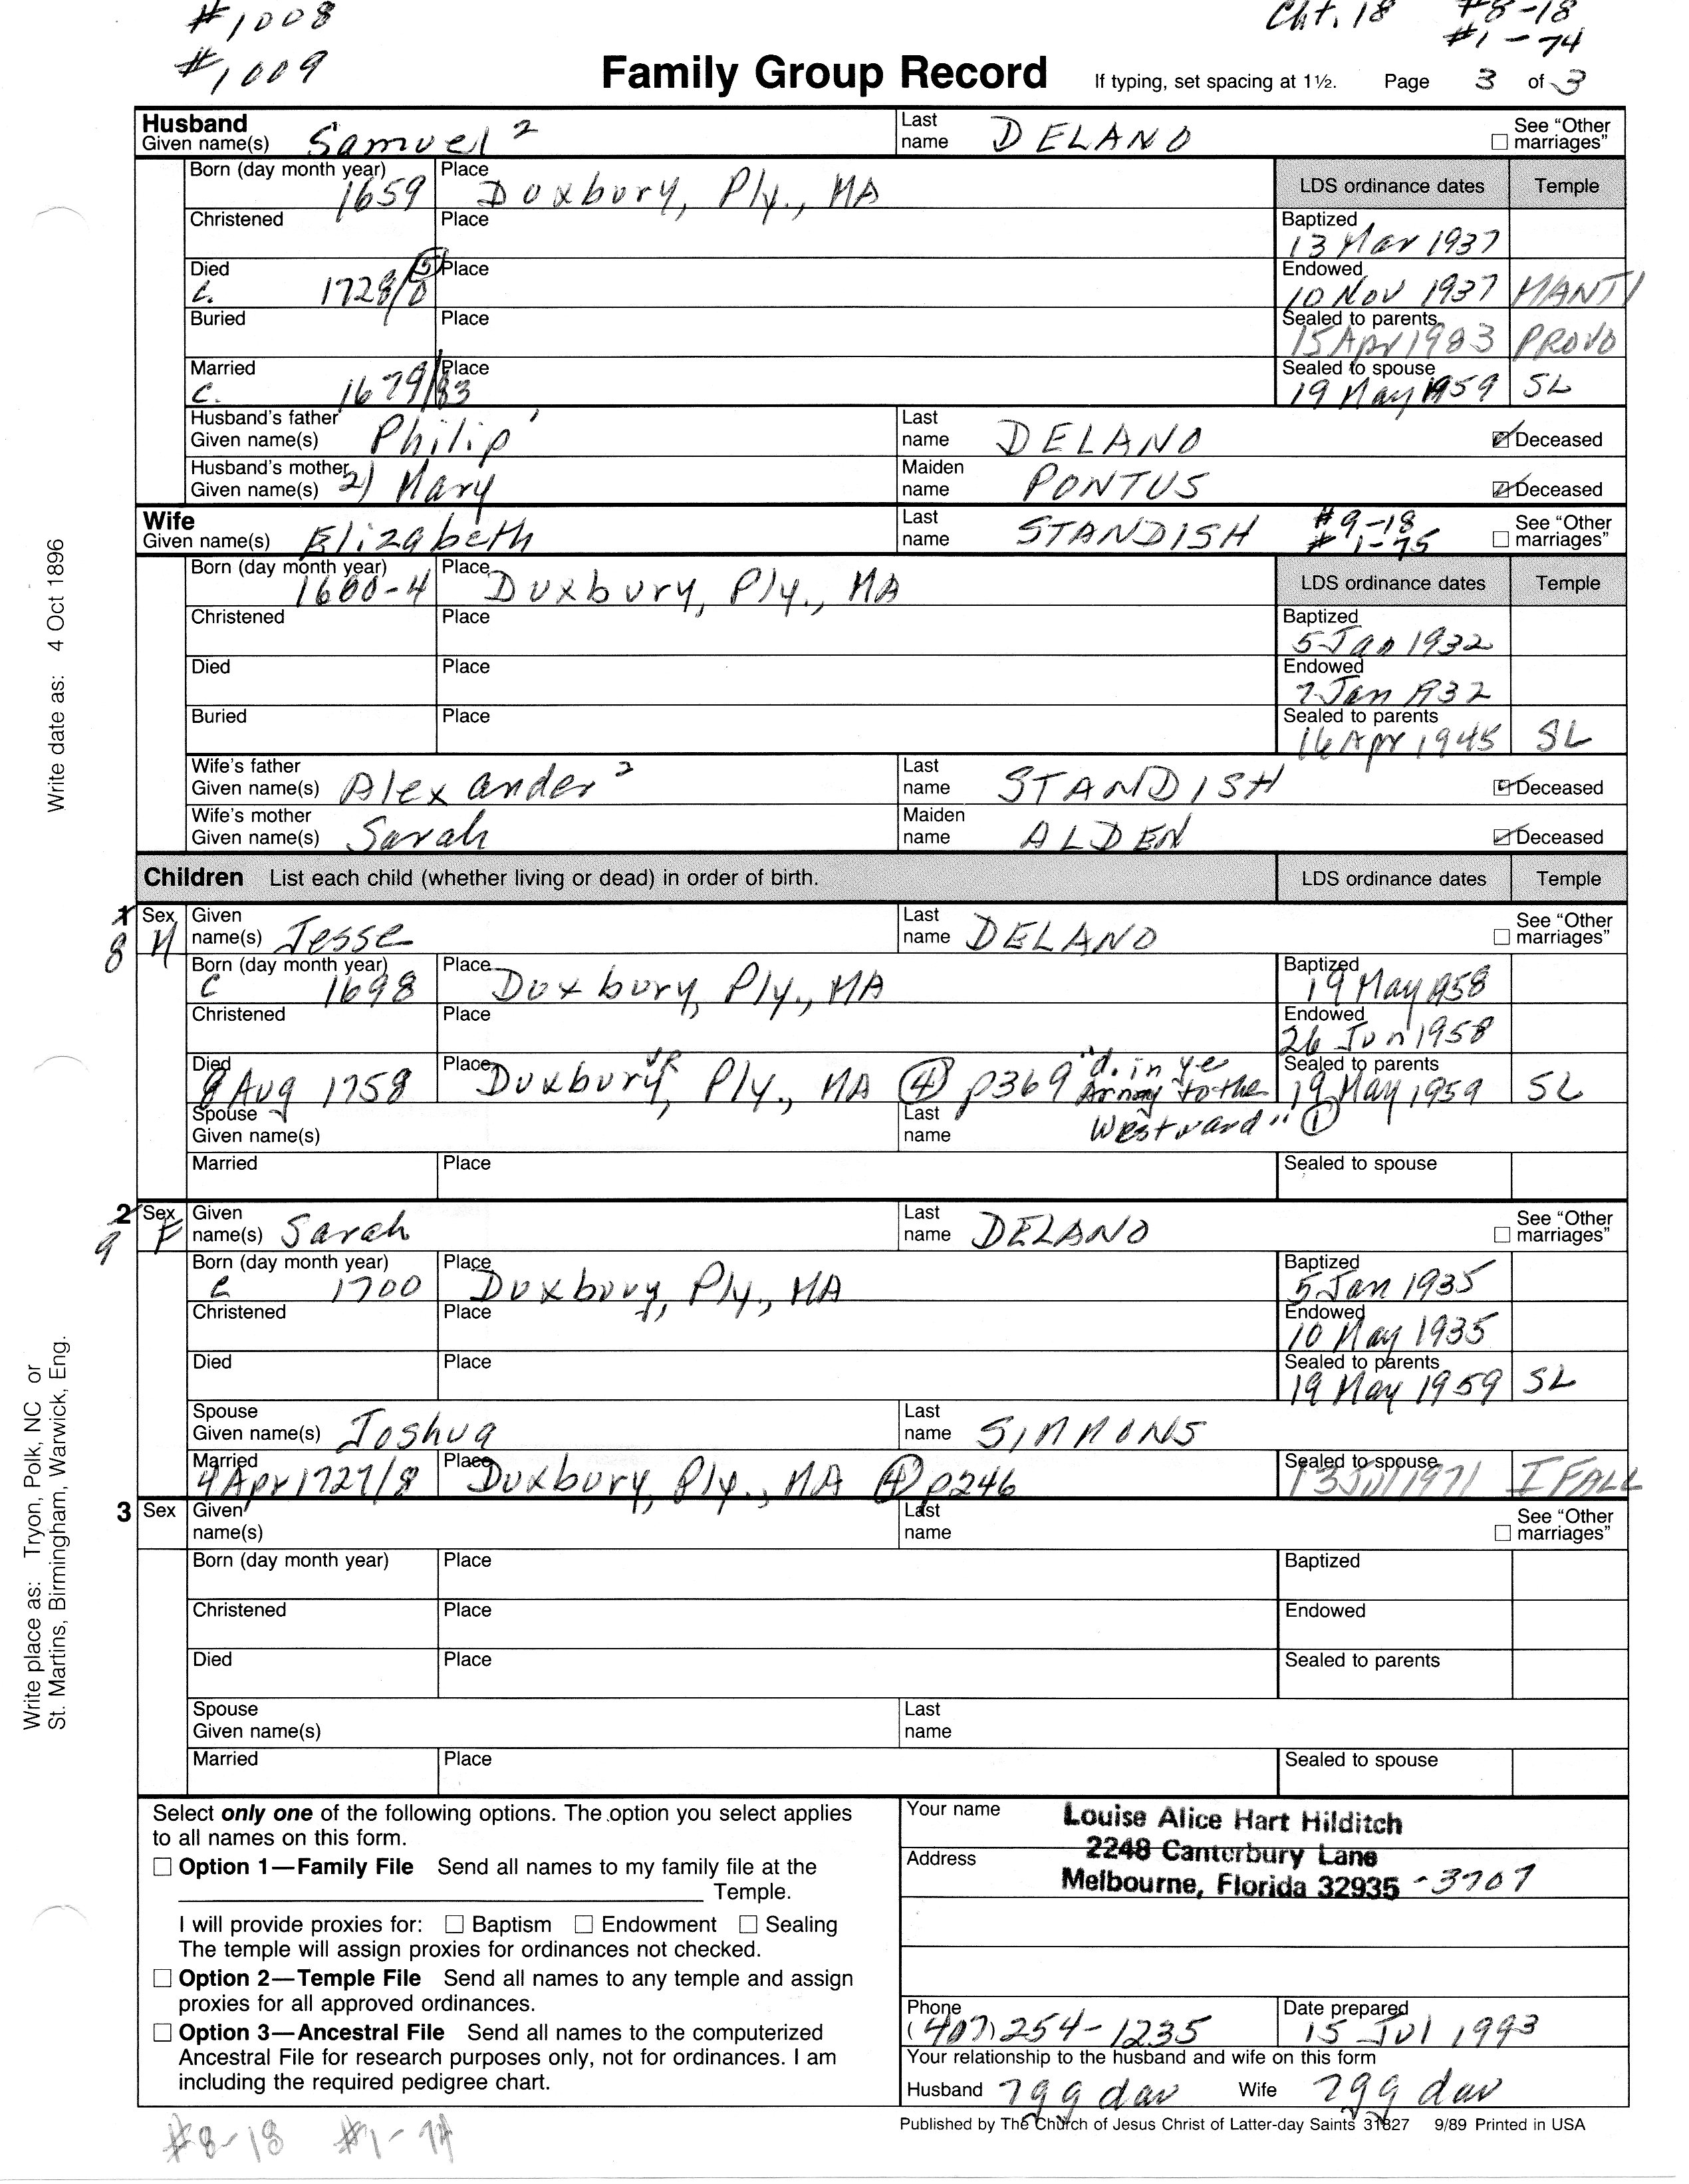 #1008 Cht. 18 #8-18
#1-74
#1009 Family Group Record If typing, set spacing at 1½. Page 3 of 3
Husband
Given name(s) Samuel 2 Last name DELANO See “Other marriages”
Born (day month year) 1659 Place Duxbury, Ply., MA LDS ordinance dates Temple
Christened Place Baptized 13 Mar 1937
Died C. 1728/ Place Endowed 10 Nov 1937 MANTI
Buried Place Sealed to parents 15 Apr 1983 PROVO
Married C. 1679/83 Place Sealed to spouse 19 May 1959 SL
Husband's father Given name(s) Philip 1 Last name DELANO Deceased
Husband's mother Given name(s) 2) Mary Maiden name PONTUS Deceased
Wife
Given name(s) Elizabeth Last name STANDISH #9-18 # 1-75 See “Other marriages”
Born (day month year) 1660-4 Place Duxbury, Ply., MA LDS ordinance dates Temple
Christened Place Baptized 5 Jan 1932
Died Place Endowed 7 Jan 1932
Buried Place Sealed to parents 16 Apr 1945 SL
Wife's father Given name(s) Alexander 2 Last name STANDISH Deceased
Wife's mother Given name(s) Sarah Maiden name ALDEN Deceased
Children List each child (whether living or dead) in order of birth. LDS ordinance dates Temple
1 8 Sex M Given name(s) Jesse Last name DELANO See “Other marriages”
Born (day month year) C 1698 Place Duxbury, Ply., MA Baptized 19 May 1958
Christened Place Endowed 26 Jun 1958
Died 8 Aug 1758 Place Duxbury VR, Ply., MA ④ p369 "d. in ye Army to the Westward" ① Sealed to parents 19 May 1959 SL
Spouse Given name(s) Last name
Married Place Sealed to spouse
2 9 Sex F Given name(s) Sarah Last name DELANO See “Other marriages”
Born (day month year) C 1700 Place Duxbury, Ply., MA Baptized 5 Jan 1935
Christened Place Endowed 10 May 1935
Died Place Sealed to parents 19 May 1959 SL
Spouse Given name(s) Joshua Last name SIMMONS
Married 4 Apr 1727/8 Place Duxbury, Ply., MA ④ p246 Sealed to spouse 13 Jul 1971 I FALL
3 Sex Given name(s) Last name See “Other marriages”
Born (day month year) Place Baptized
Christened Place Endowed
Died Place Sealed to parents
Spouse Given name(s) Last name
Married Place Sealed to spouse
Select only one of the following options. The option you select applies
to all names on this form.
Option 1—Family File Send all names to my family file at the
Temple.
I will provide proxies for: Baptism Endowment Sealing
The temple will assign proxies for ordinances not checked.
Option 2—Temple File Send all names to any temple and assign
proxies for all approved ordinances.
Option 3—Ancestral File Send all names to the computerized
Ancestral File for research purposes only, not for ordinances. I am
including the required pedigree chart.
Your name Louise Alice Hart Hilditch
Address 2248 Canterbury Lane
Melbourne, Florida 32935 -3707
Phone (407) 254-1235 Date prepared 15 Jul 1993
Your relationship to the husband and wife on this form
Husband 7gg dau Wife 7gg dau
Published by The Church of Jesus Christ of Latter-day Saints 31827 9/89 Printed in USA
#8-18 #1-74
Write date as: 4 Oct 1896
Write place as: Tryon, Polk, NC or
St. Martins, Birmingham, Warwick, Eng.